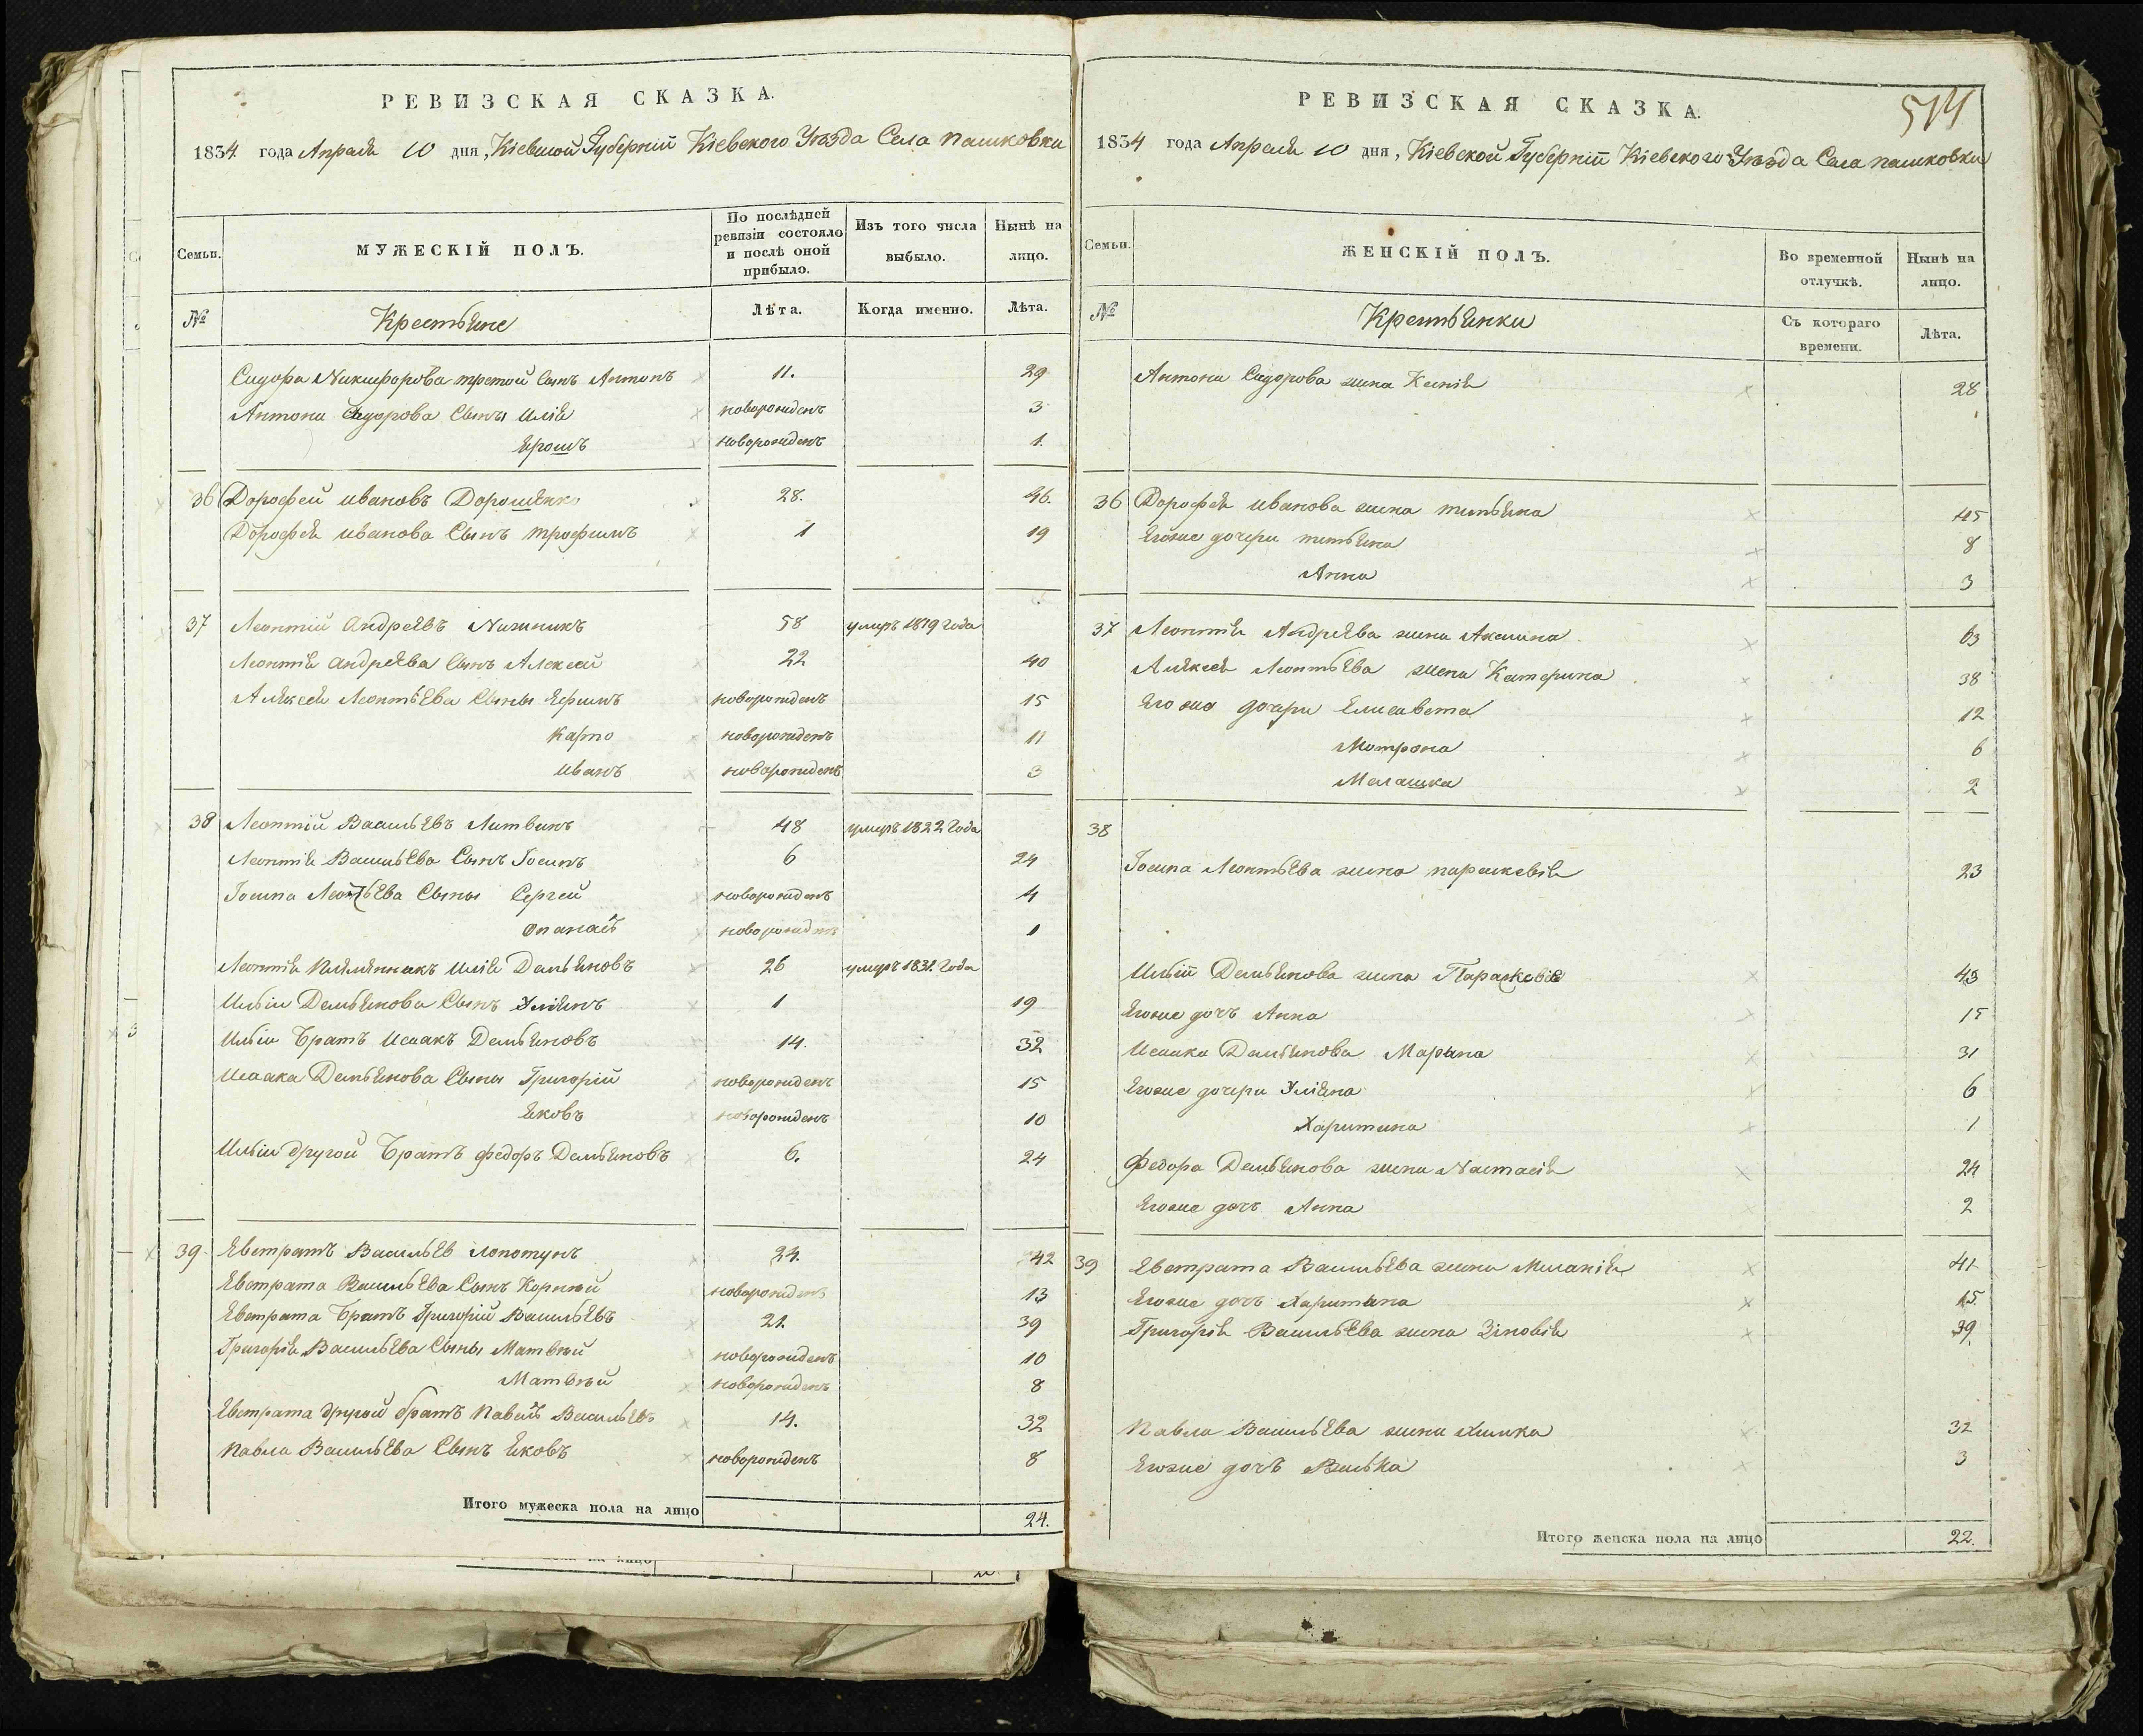 РЕВИЗСКАЯ СКАЗКА.
1834. года Апреля 10 дня, Кіевской Губерніи Кіевского Уѣзда Села пашковки
Семьи.
МУЖЕСКІЙ ПОЛЪ.
По послѣдней ревизіи состояло и послѣ оной прибыло.
Изъ того числа выбыло.
Нынѣ на лицо.
№
Крестьяне
Лѣта.
Когда именно.
Лѣта.
Сидора Никифорова третой сынъ Антонъ 11. 29
Антона Сидорова Сыны Илія новорожденъ 3
Ярошъ новорожденъ 1.
36 Дорофей ивановъ Дорошенко 28. 46.
Дорофея иванова Сынъ трофимъ 1 19
37 Леонтій андреевъ Нижникъ 58 умеръ 1819 года
Леонтія андреева сынъ Алексей 22 40
Алексея Леонтьева Сыны Ефимъ новорожденъ 15
Карпо новорожденъ 11
иванъ новорожденъ 3
38 Леонтій Васильевъ Литвинъ 48 умеръ 1822 года
Леонтія Васильева Сынъ Іосипъ 6 24
Іосипа Леонтьева Сыны Сергей новорожденъ 4
опанасъ новорожденъ 1
Леонтія племянникъ илія Демьяновъ 26 умеръ 1831. года
Ильи Демьянова Сынъ Улиянъ 1 19
Ильи братъ Исаакъ Демьяновъ 14. 32
Исаака Демьянова Сыны Григорій новорожденъ 15
Яковъ новорожденъ 10
Ильи другой братъ федоръ Демьяновъ 6. 24
39 Евстратъ Васильев лопотунъ 24. 42
Евстрата Васильева Сынъ Корнѣй новорожденъ 13
Евстрата братъ Григорій Васильевъ 21. 39
Григорія Васильева Сыны Матвѣй новорожденъ 10
Матвѣй новорожденъ 8
Евстрата другой братъ павелъ Васильевъ 14. 32
павла Васильева Сынъ Яковъ новорожденъ 8
Итого мужеска пола на лицо 24.
514
РЕВИЗСКАЯ СКАЗКА.
1834 года Апреля 10 дня, Кіевской Губерніи Кіевского Уѣзда Села пашковки
Семьи.
ЖЕНСКІЙ ПОЛЪ.
Во временной отлучкѣ.
Нынѣ на лицо.
№
Крестьянки
Съ котораго времени.
Лѣта.
Антона Сидорова жена Ксенія 28
36 Дорофея иванова жена титьяна 45
Егоже дочери титьяна 8
Анна 3
37 Леонтія Андреева жена Акилина 63
Алексея Леонтьева жена Катерина 38
Егоже дочери Елисавета 12
Мотрона 6
Малашка 2
38
Іосипа Леонтьева жена параскевія 23
Ильи Демьянова жена Парасковія 43
Егоже дочъ Анна 15
Исаака Демьянова Марина 31
Егоже дочери Улияна 6
Харитина 1
Федора Демьянова жена Настасія 24
Егоже дочъ Анна 2
39 Евстрата Васильева жена Миланія 41
Егоже дочъ Харитина 15.
Григорія Васильева жена Зіновія 39.
Павла Васильева жена Химка 32
Егоже дочъ Васька 3
Итого женска пола на лицо 22.